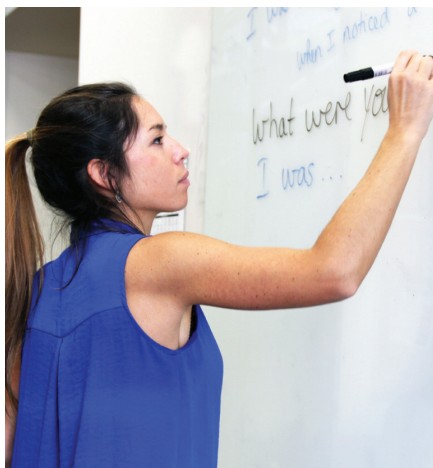 I was
when I noticed a
What were you
I was ...